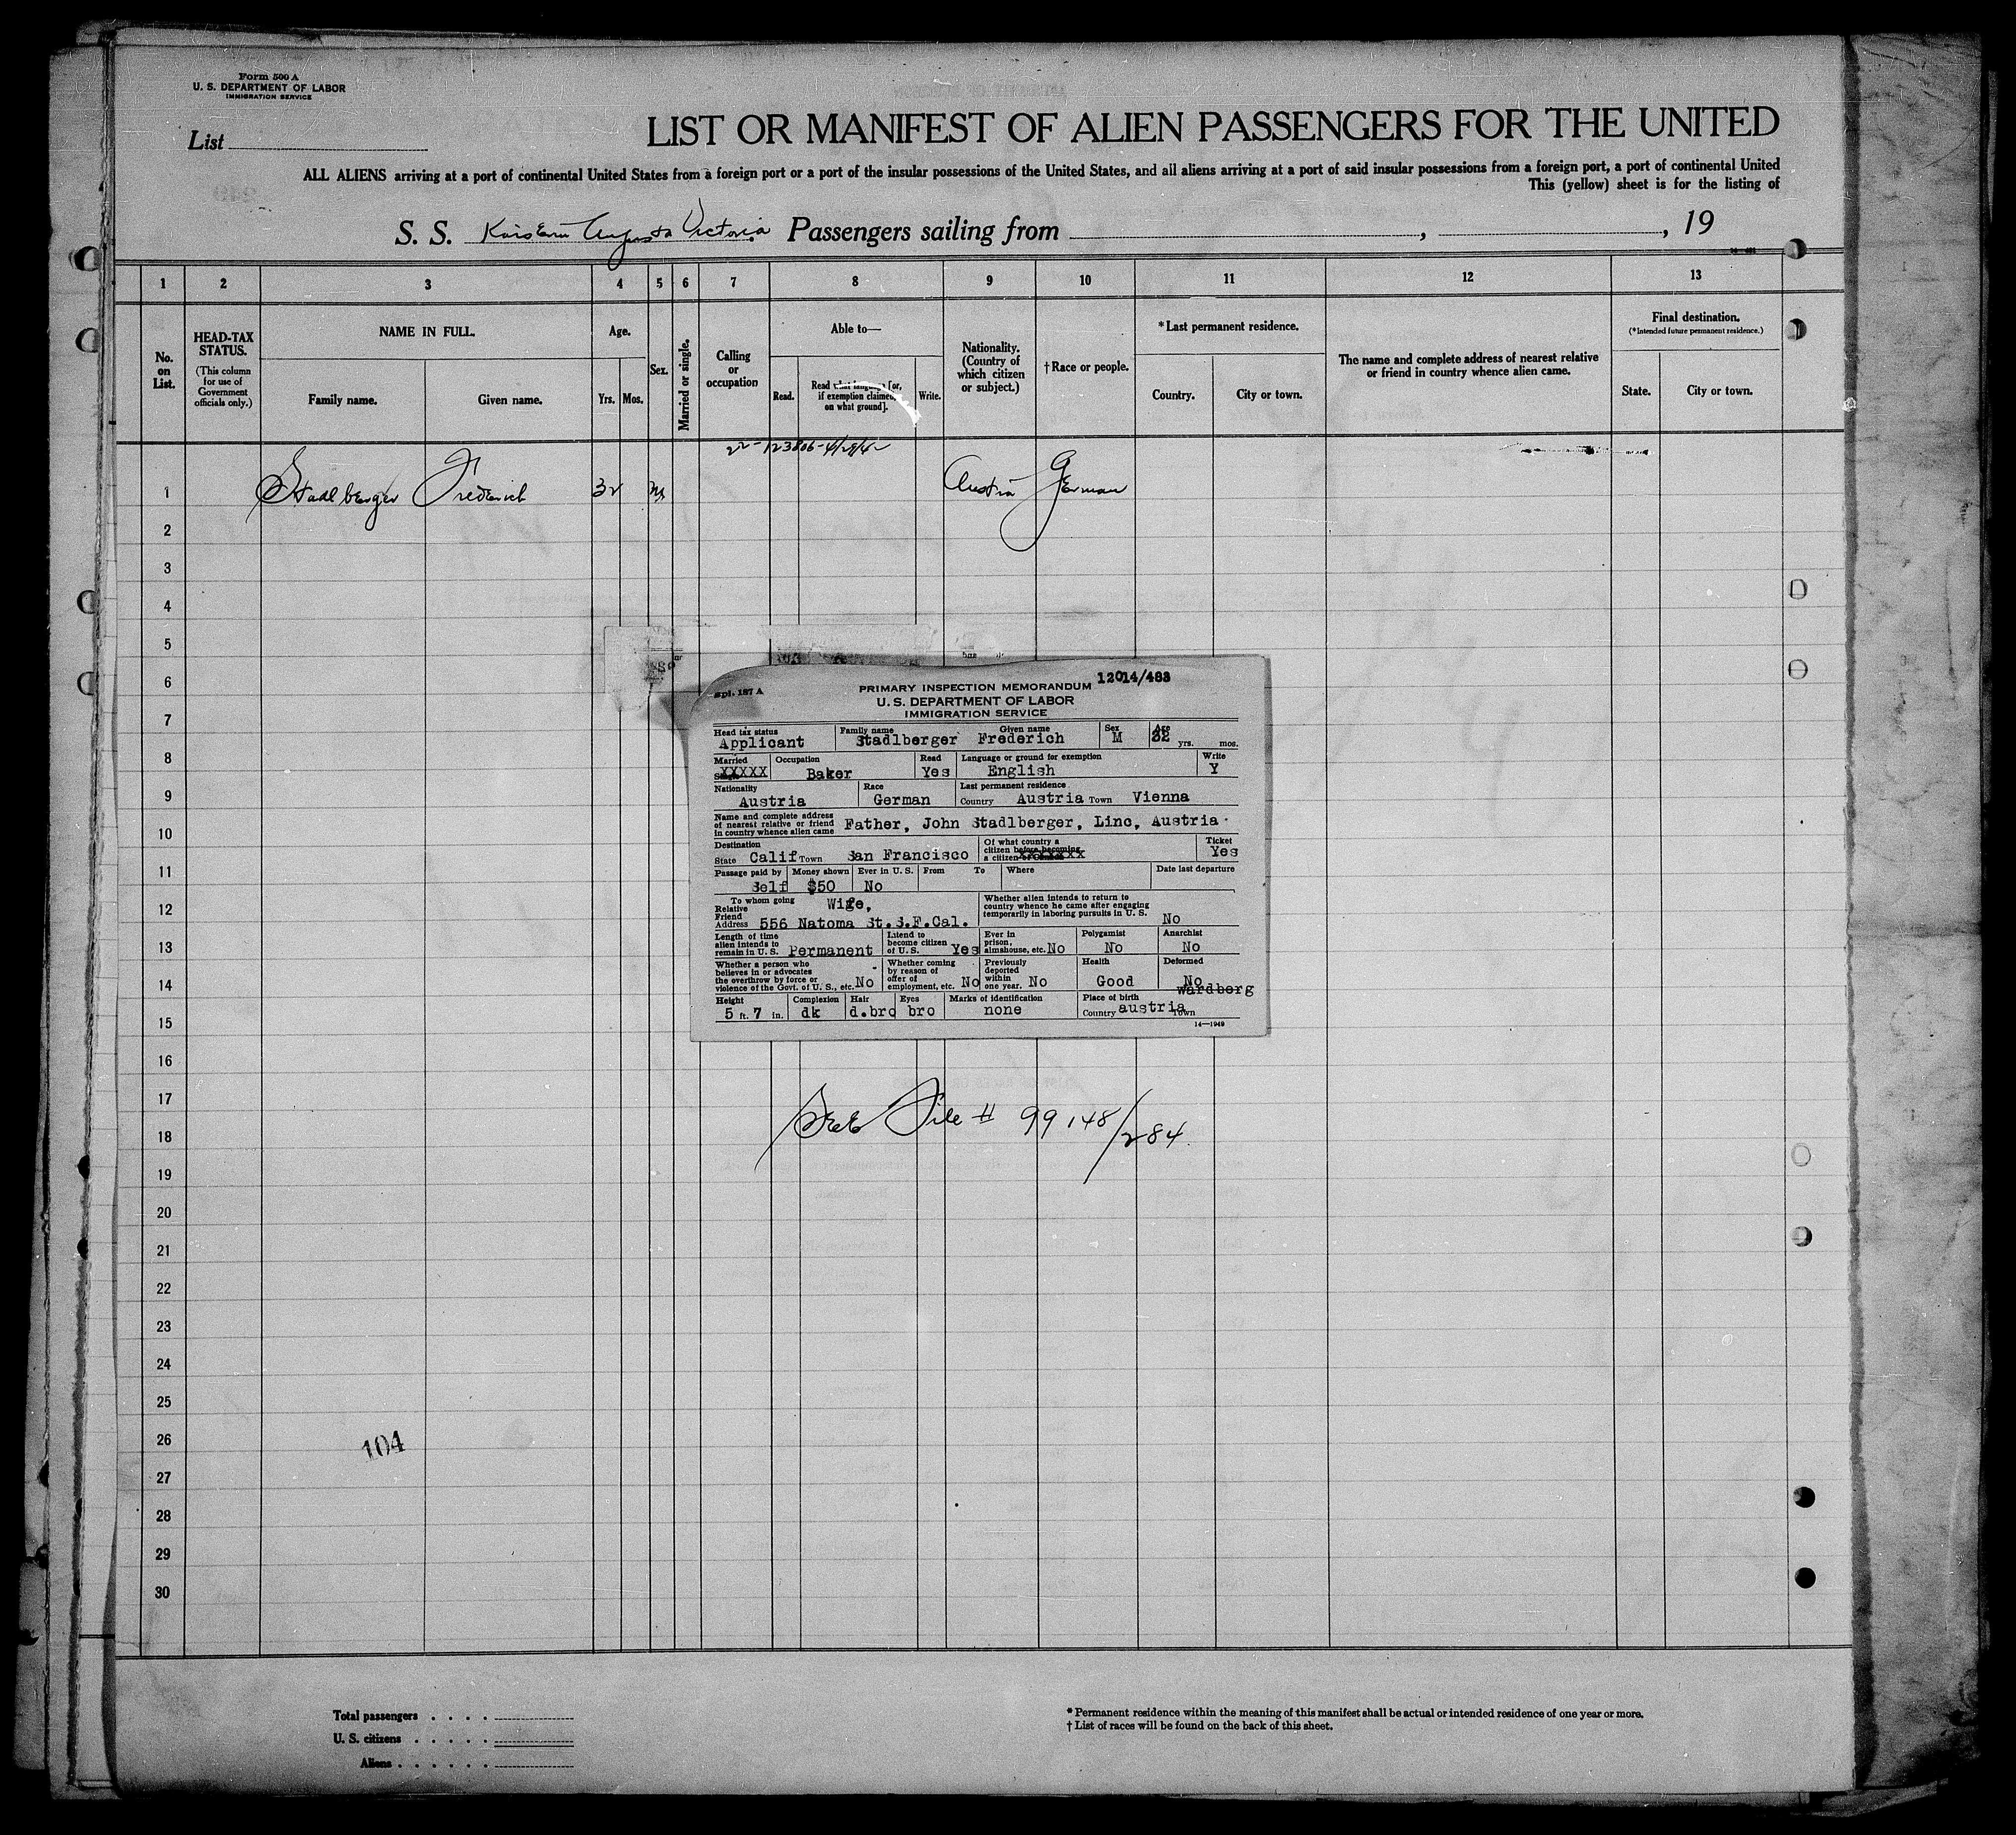 Form 500 A
U. S. DEPARTMENT OF LABOR
IMMIGRATION SERVICE
List
LIST OR MANIFEST OF ALIEN PASSENGERS FOR THE UNITED
ALL ALIENS arriving at a port of continental United States from a foreign port or a port of the insular possessions of the United States, and all aliens arriving at a port of said insular possessions from a foreign port, a port of continental United
This (yellow) sheet is for the listing of
S. S. Kaiserin Augusta Victoria Passengers sailing from , , 19
1 2 3 4 5 6 7 8 9 10 11 12 13
No. on List.
HEAD-TAX STATUS.
(This column for use of Government officials only.)
NAME IN FULL.
Family name. Given name.
Age.
Yrs. Mos.
Sex.
Married or single.
Calling or occupation
Able to—
Read. Read what language [or, if exemption claimed, on what ground]. Write.
Nationality. (Country of which citizen or subject.)
†Race or people.
*Last permanent residence.
Country. City or town.
The name and complete address of nearest relative or friend in country whence alien came.
Final destination.
(*Intended future permanent residence.)
State. City or town.
22-123806-4/29/42
1 Stadlberger Frederich 32 M Austria German
2
3
4
5
6
7
8
9
10
11
12
13
14
15
16
17
18
19
20
21
22
23
24
25
26
27
28
29
30
Spl. 187 A
12014/483
PRIMARY INSPECTION MEMORANDUM
U. S. DEPARTMENT OF LABOR
IMMIGRATION SERVICE
Head tax status Family name Given name Sex Age
Applicant Stadlberger Frederich M 32 yrs. mos.
Married Occupation Read Language or ground for exemption Write
Single XXXXX Baker Yes English Y
Nationality Race Last permanent residence
Austria German Country Austria Town Vienna
Name and complete address of nearest relative or friend in country whence alien came Father, John Stadlberger, Linc, Austria.
Destination Of what country a citizen before becoming a citizen of Canada xxxxxxx Ticket
State Calif Town San Francisco Yes
Passage paid by Money shown Ever in U. S. From To Where Date last departure
Self $50 No
To whom going Wife,
Relative
Friend
Address 556 Natoma St.S.F.Cal.
Whether alien intends to return to country whence he came after engaging temporarily in laboring pursuits in U. S. No
Length of time alien intends to remain in U. S. Permanent
Intend to become citizen of U. S. Yes
Ever in prison, almshouse, etc. No
Polygamist No
Anarchist No
Whether a person who believes in or advocates the overthrow by force or violence of the Govt. of U. S., etc. No
Whether coming by reason of offer of employment, etc. No
Previously deported within one year. No
Health Good
Deformed No
Height Complexion Hair Eyes Marks of identification Place of birth wardberg
5 ft. 7 in. dk d.bro bro none Country austria Town
14—1949
See File # 99148/284.
104
Total passengers
U. S. citizens
Aliens
* Permanent residence within the meaning of this manifest shall be actual or intended residence of one year or more.
† List of races will be found on the back of this sheet.